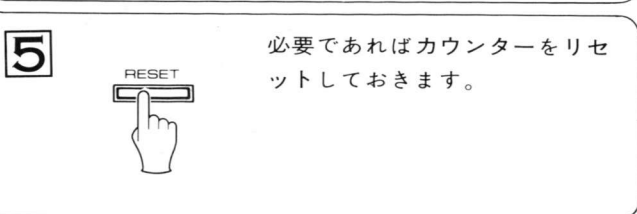 5
RESET
必要であればカウンターをリセ
ットしておきます。